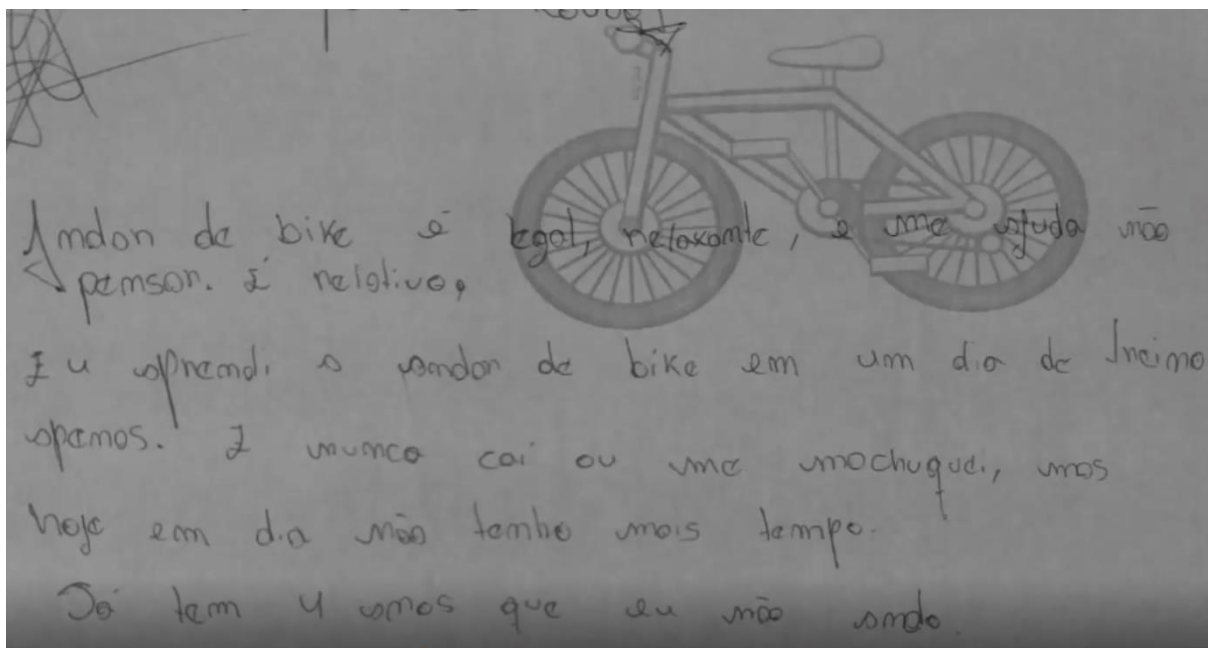 Andar de bike é legal, relaxante, e me ajuda não
pensar. É relativo,
Eu aprendi a andar de bike em um dia de treino
apenas. E nunca cai ou me machuquei, mas
hoje em dia não tenho mais tempo.
Já tem 4 anos que eu não ando.